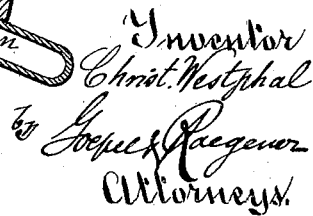 Inventor
Christ. Westphal
by Goepel & Raegener
Attorneys.